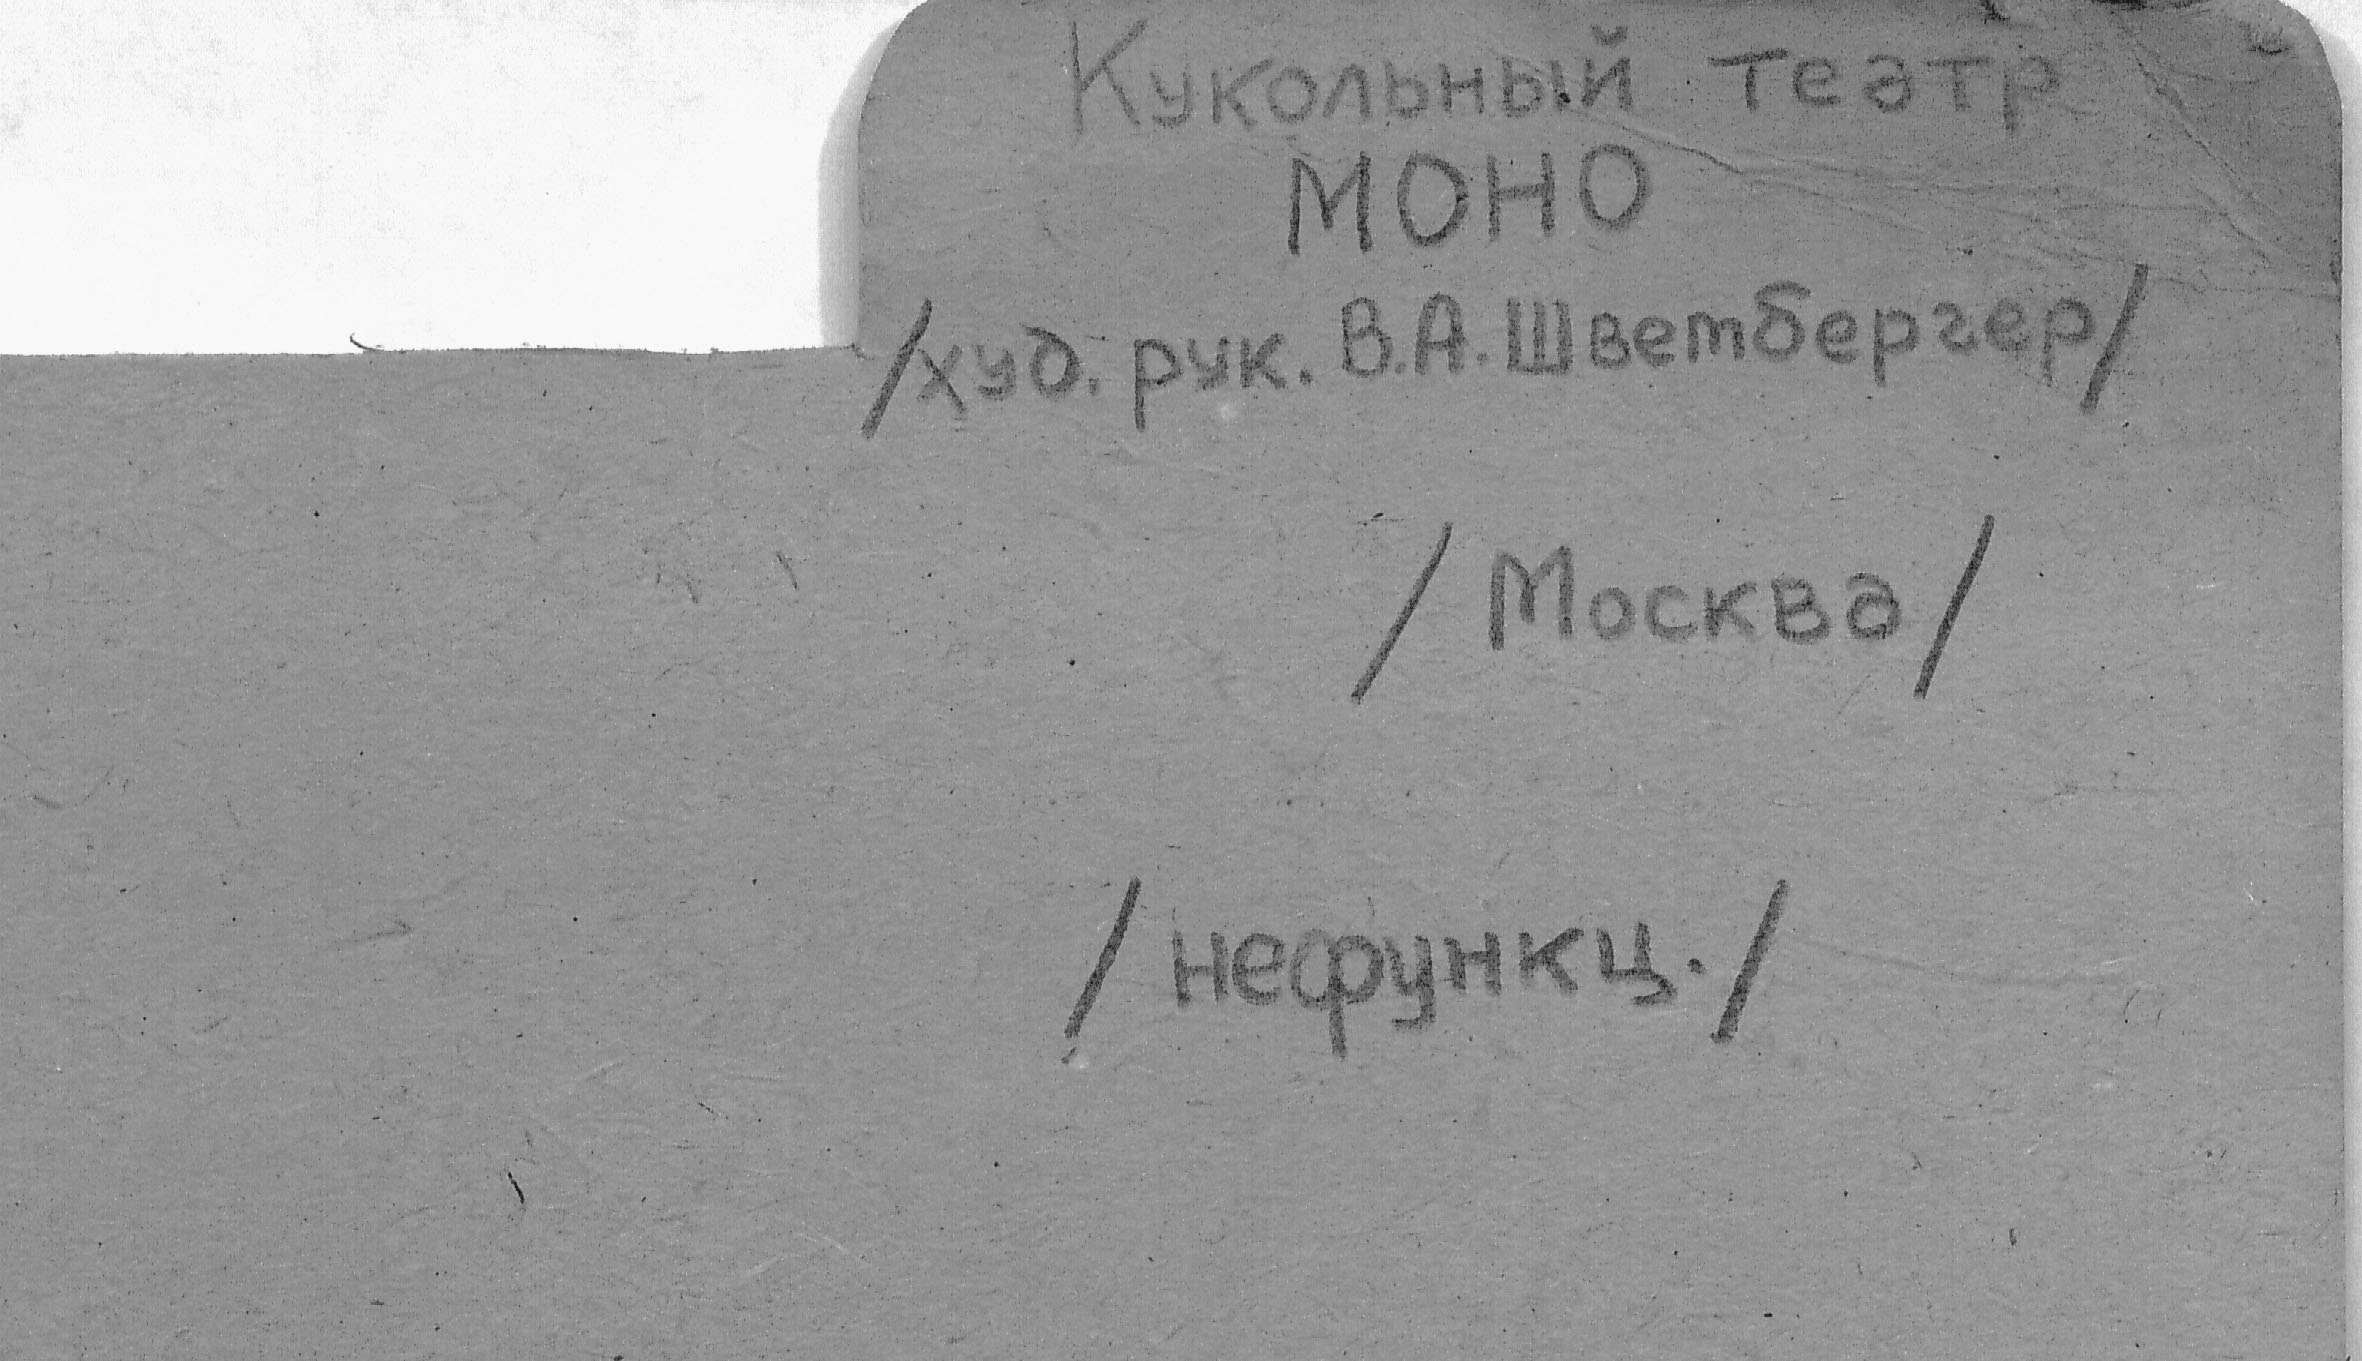 Кукольный театр
МОНО
/худ. рук. В.А. Швембергер/
/Москва/
/нефункц./